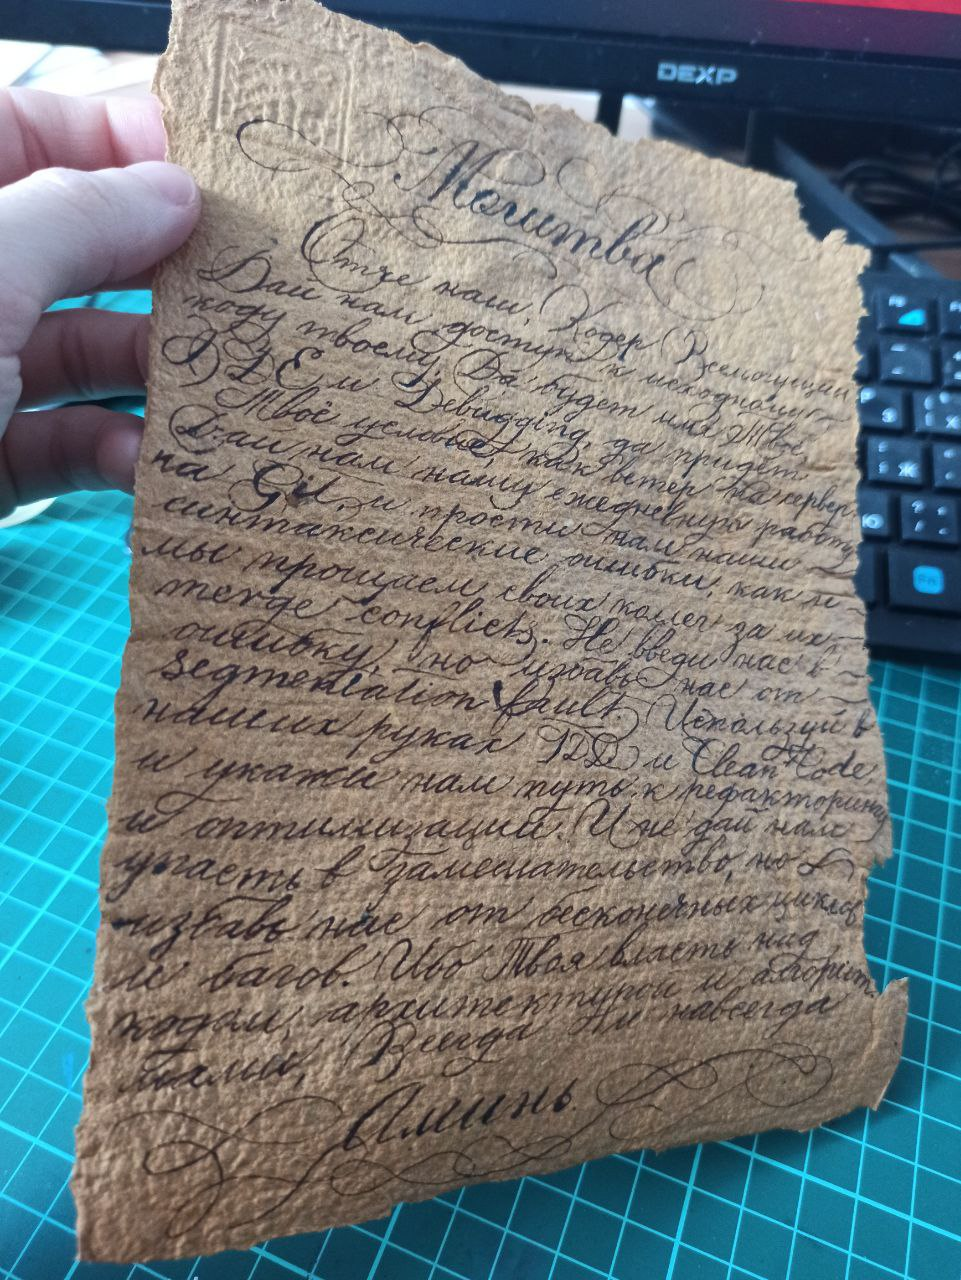 DEXP
Молитва
Отче наш, Кодер Всемогущий
Дай нам доступ к исходному
коду твоему, Да будет имя Твоё
IDE и Debugging, да придёт
Твоё условие, как ветер на сервер
Дай нам нашу ежедневную работу
на Git и прости нам наши
синтаксические ошибки, как и
мы прощаем своих коллег за их
merge conflicts. Не введи нас в
ошибку, но избавь нас от
segmentation fault. Используй в
наших руках TDD и Clean Code
и укажи нам путь к рефакторингу
и оптимизации. И не дай нам
упасть в замешательство, но
избавь нас от бесконечных циклов
и багов. Ибо Твоя власть над
кодом, архитектурой и алгорит-
мами, Всегда и навсегда
Аминь.